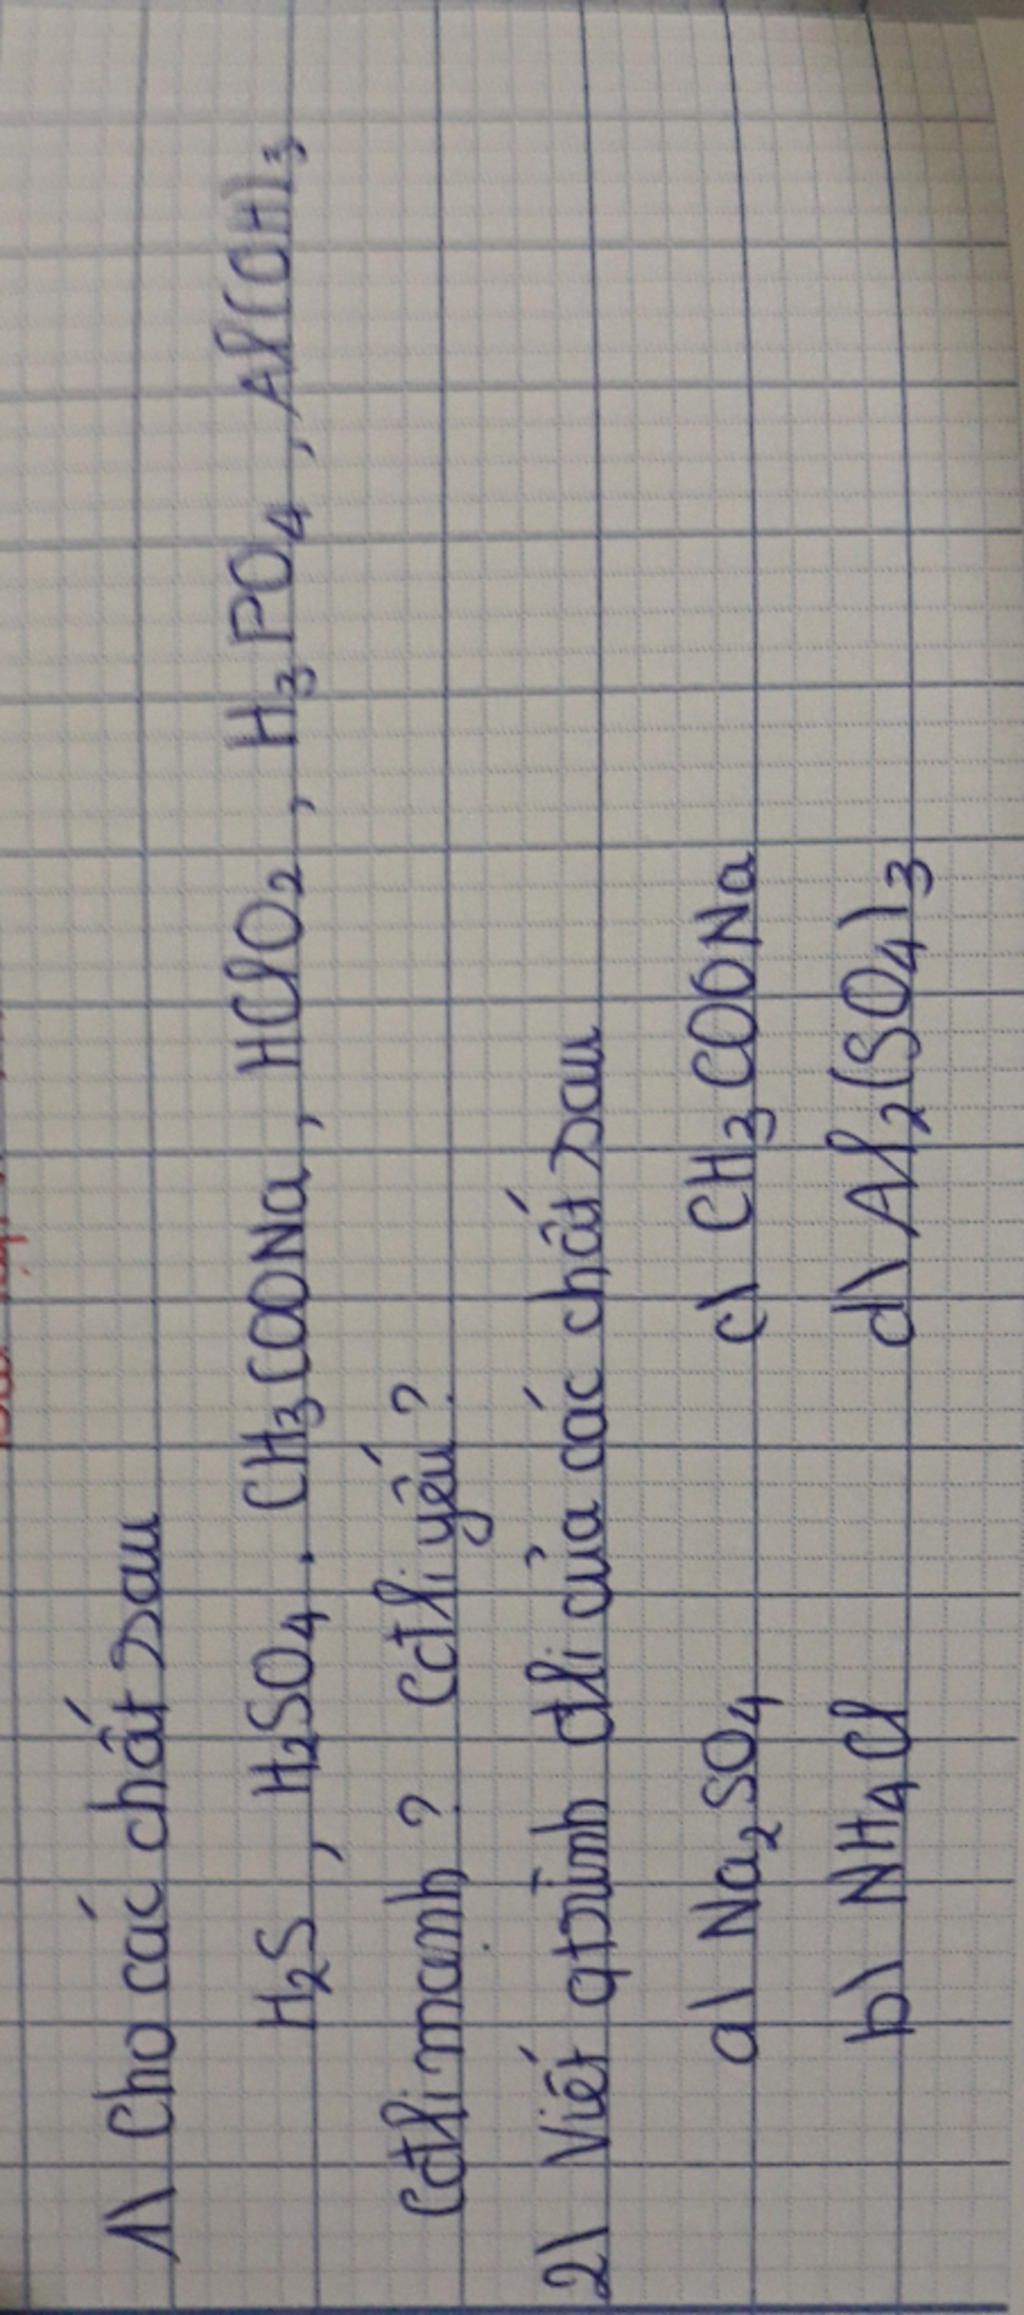 1\ Cho các chất sau
H₂S, H₂SO₄. CH₃COONa, HClO₂, H₃PO₄, Al(OH)₃
Cđli mạnh? Cđli yếu?
2\ Viết qtrình đli của các chất sau
a\ Na₂SO₄ c\ CH₃COONa
b\ NH₄Cl d\ Al₂(SO₄)₃